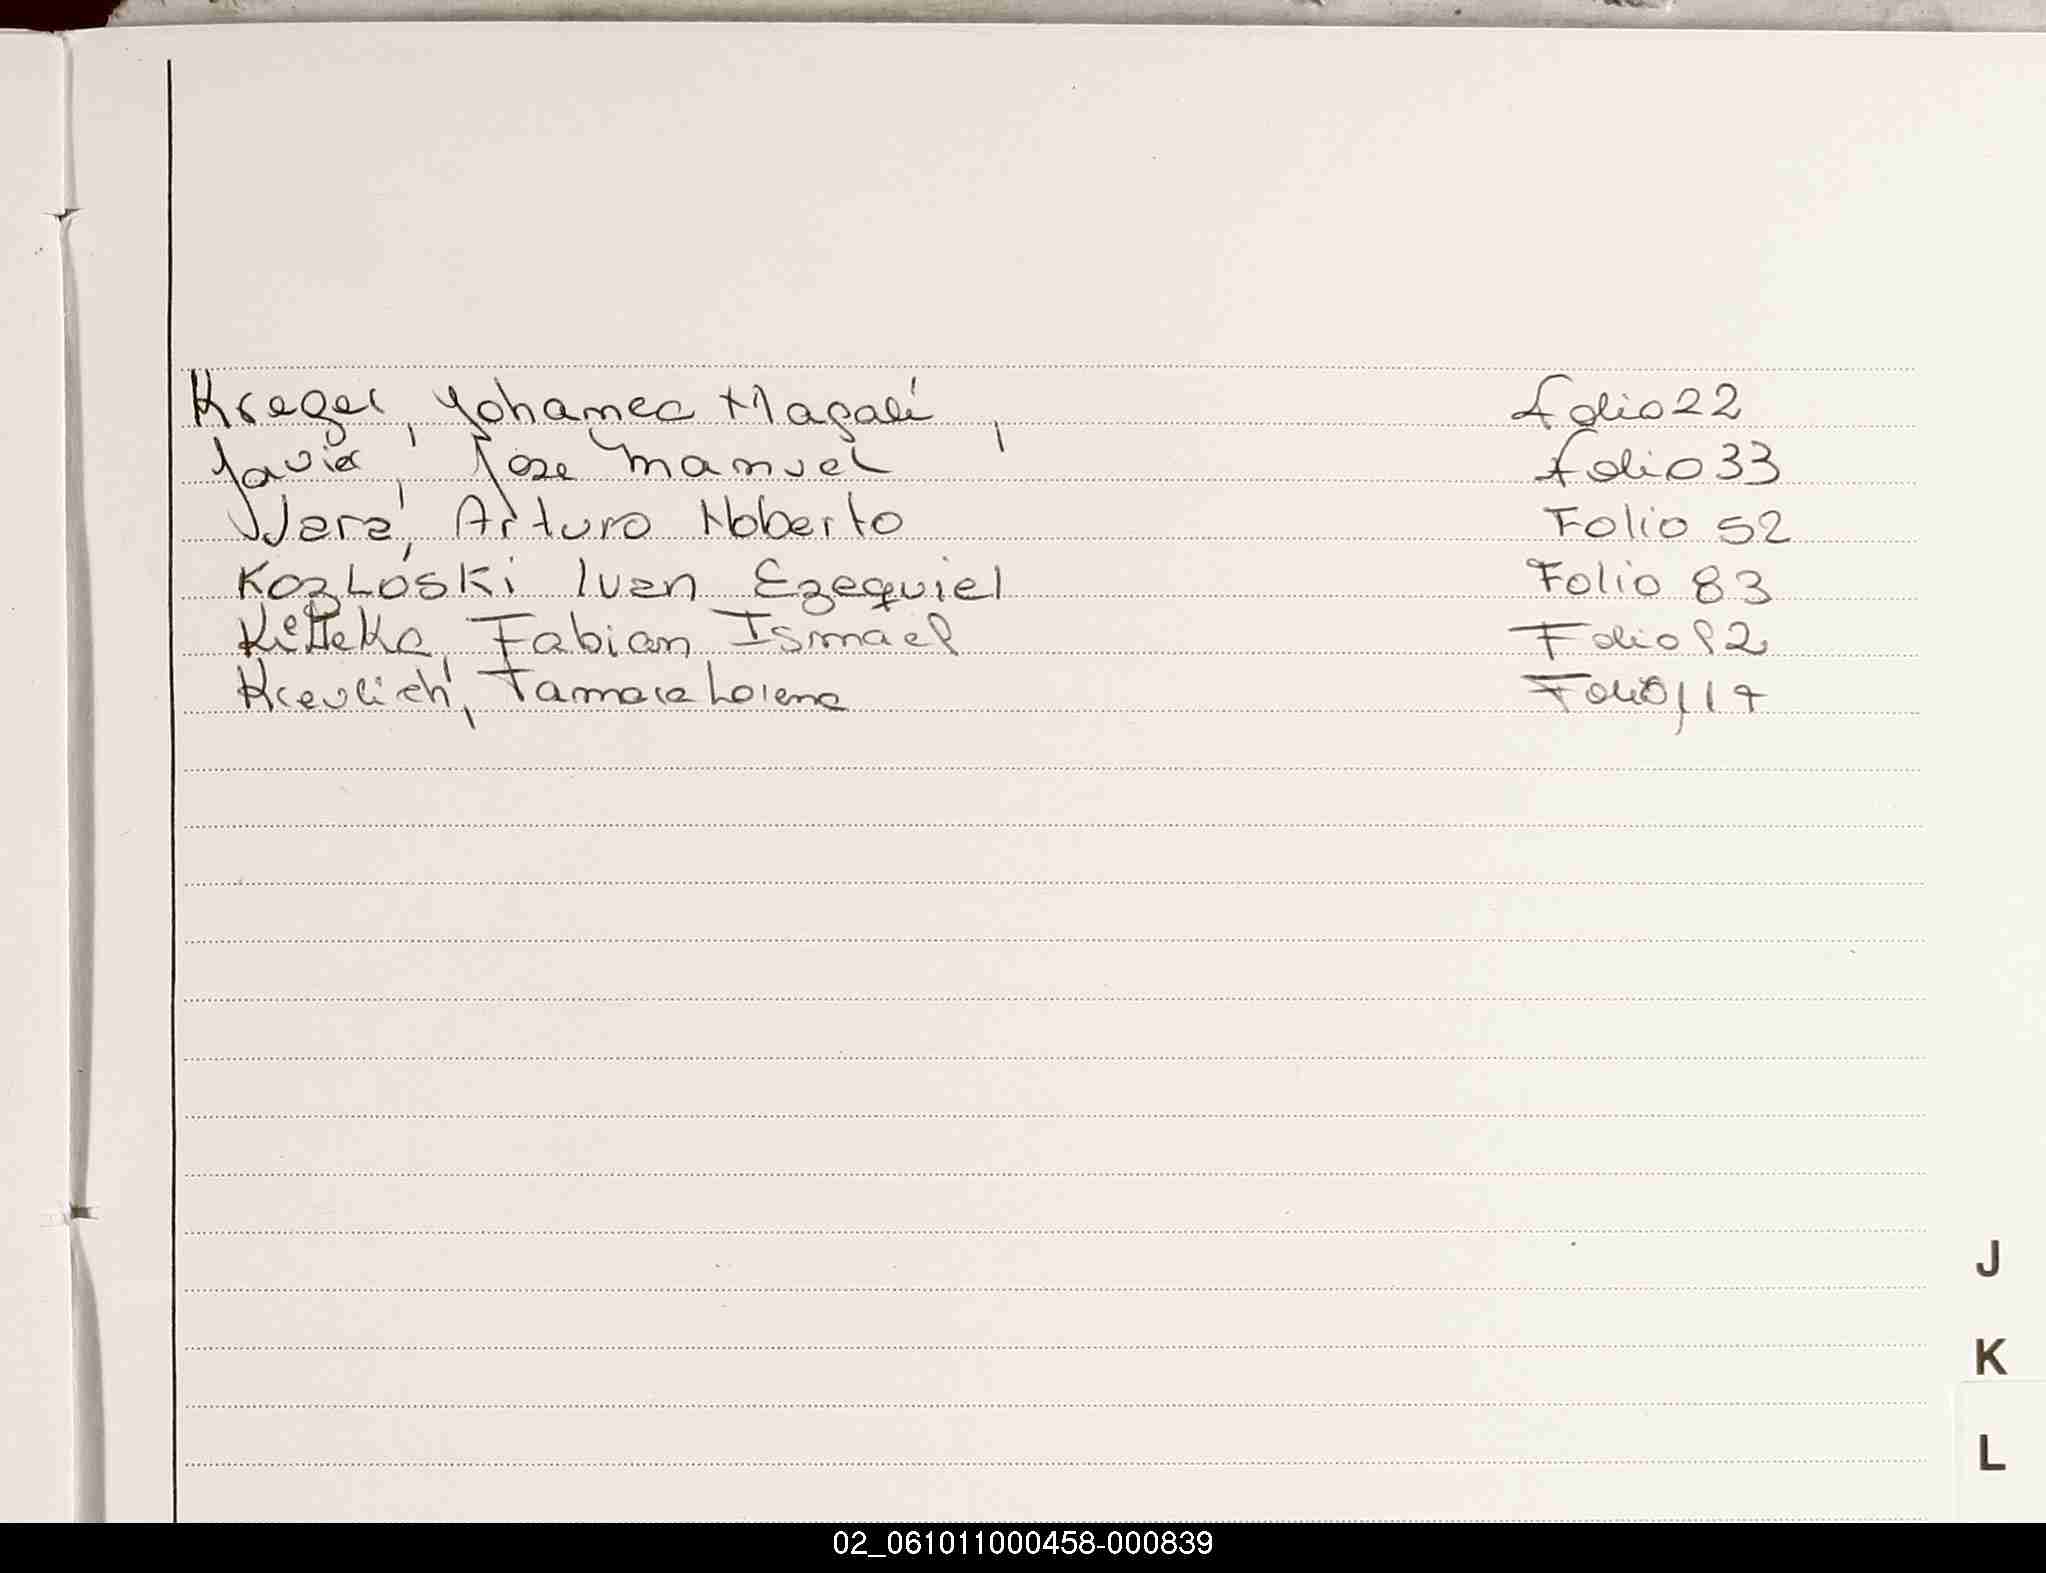 Kreger, Yohanna Magalí, folio 22
Javier, Jose Manuel folio 33
Jara, Arturo Noberto Folio 52
Kozloski Ivan Ezequiel Folio 83
Fabian Ismael Folio 92
Tamara Lorena Folio 117
J
K
L
02_061011000458-000839